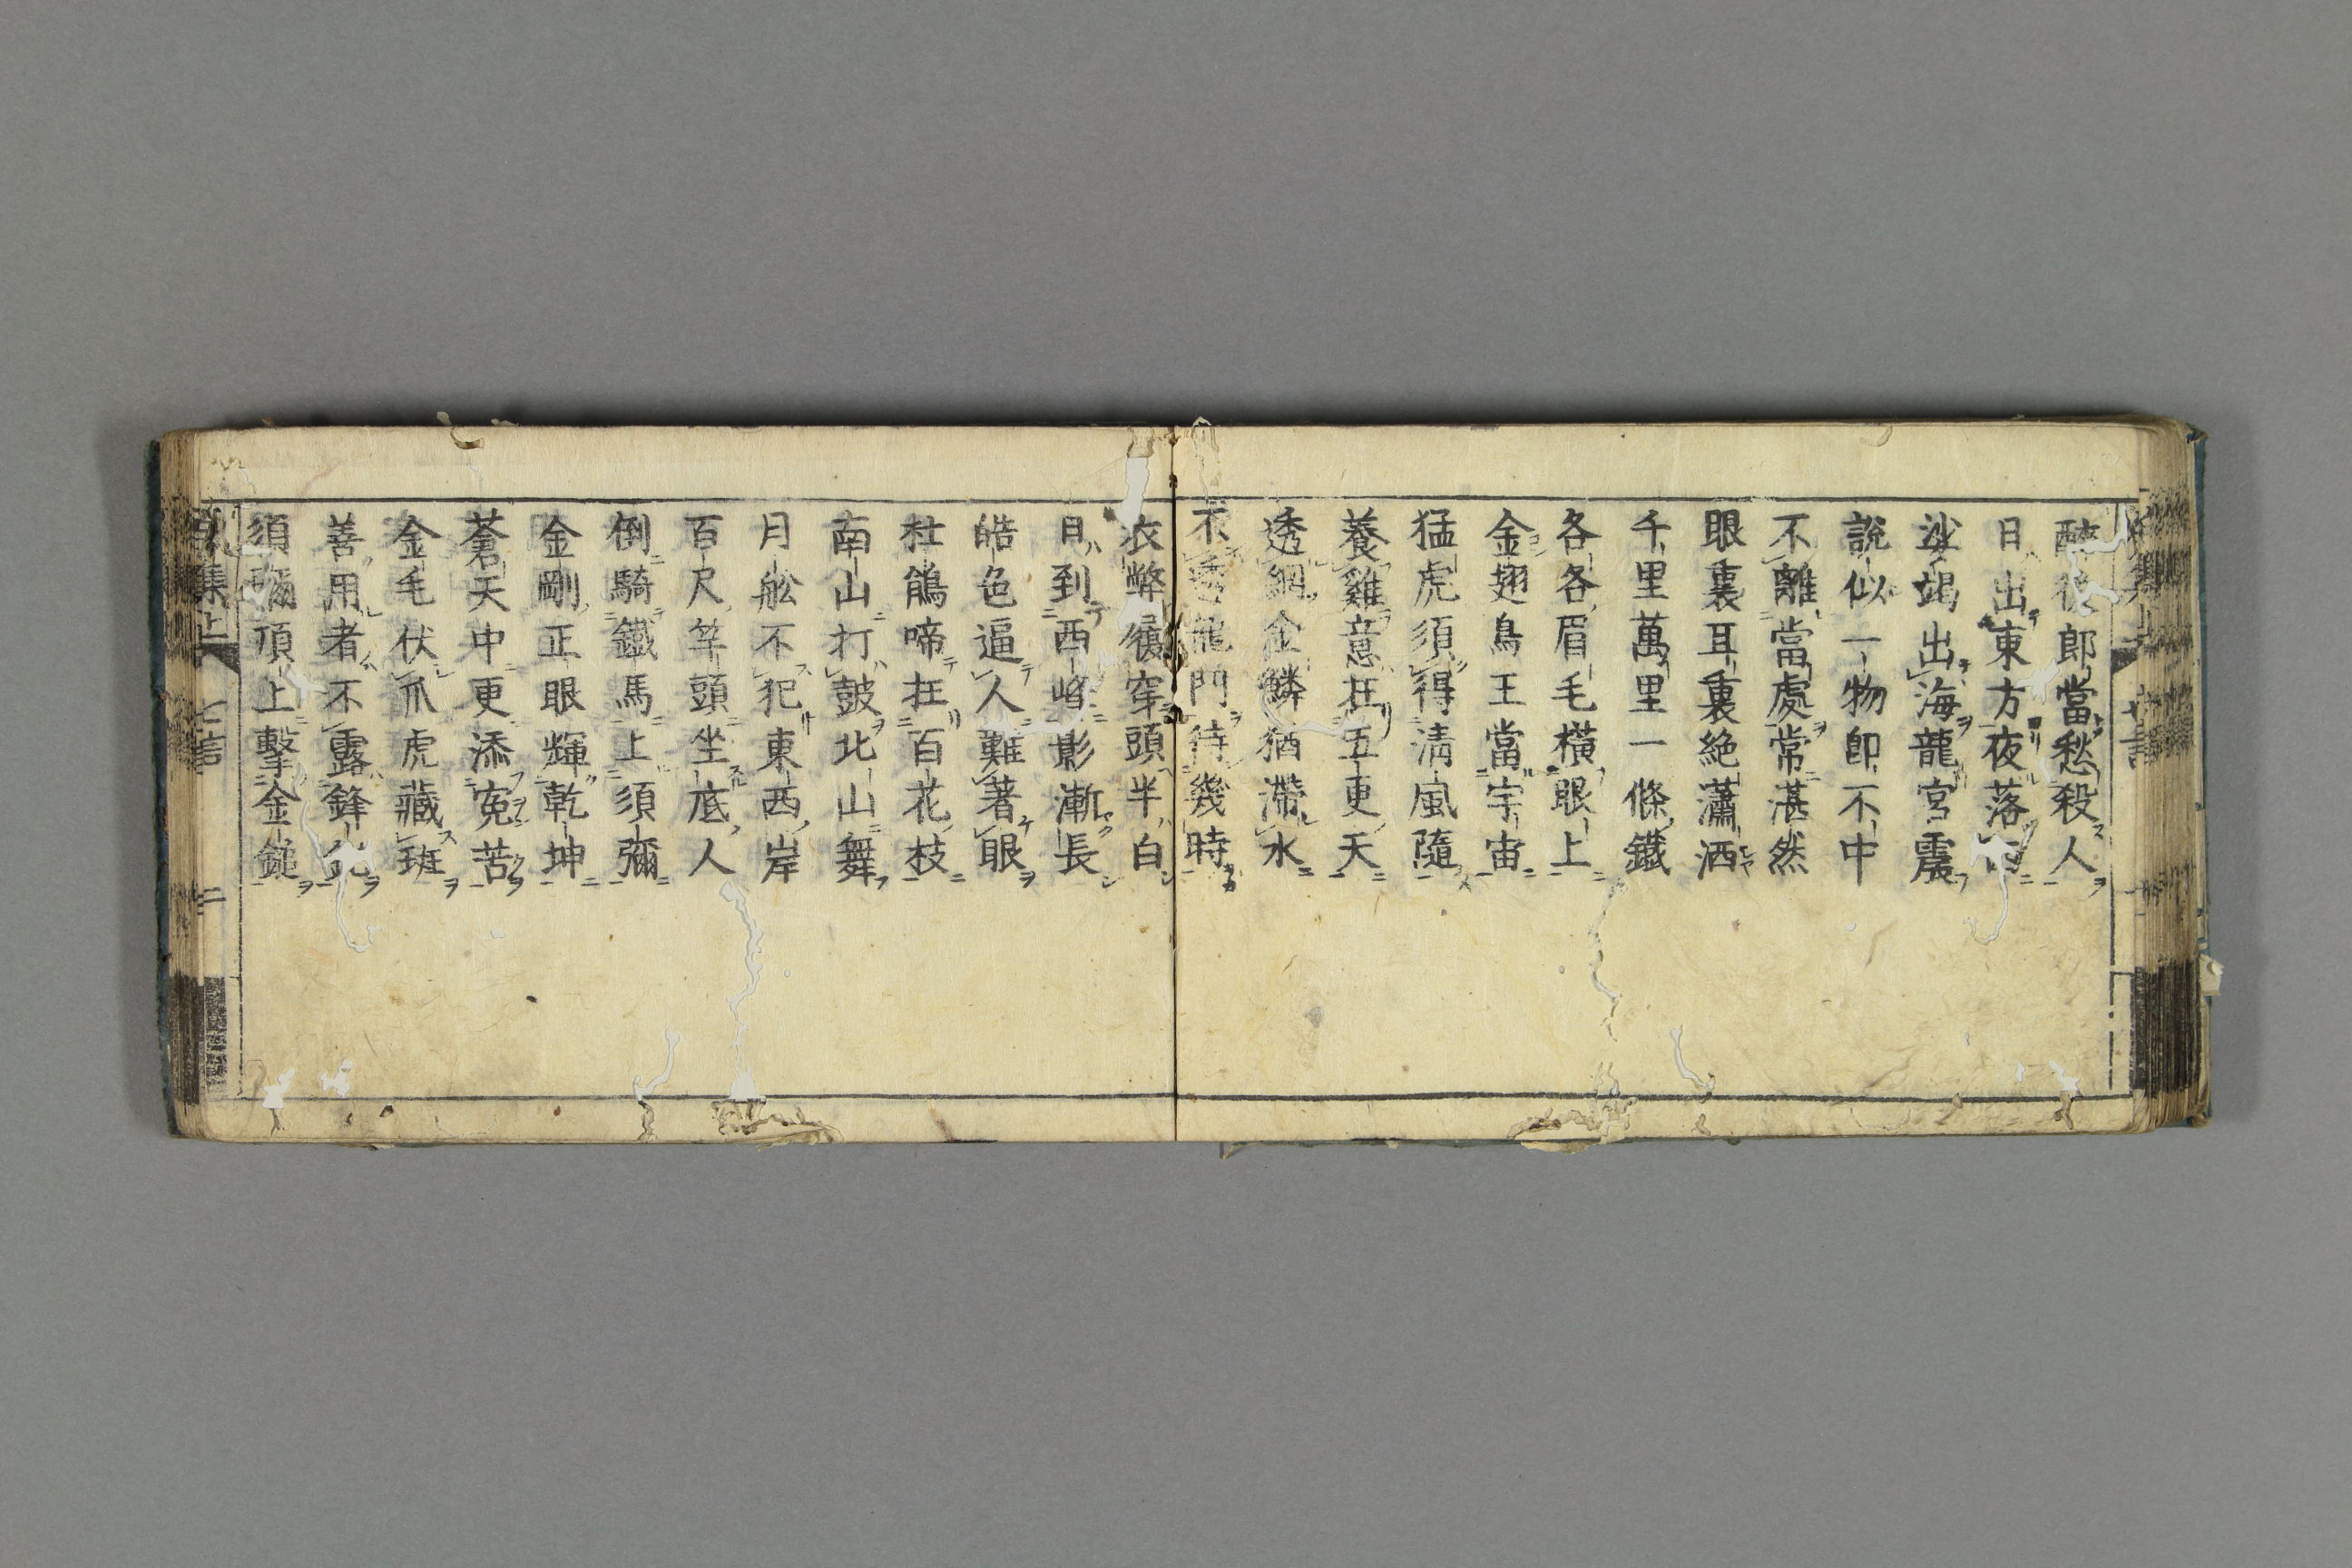 醉後郎當愁殺人
日出東方夜落西
娑竭出海龍宮震
說似一物卽不中
不離當處常湛然
眼裏耳裏絕瀟洒
千里萬里一條鐵
各各眉毛橫眼上
金翅鳥王當宇宙
猛虎須得淸風隨
養雞意在五更天
透網金鱗猶滯水
不透龍門待幾時
衣弊履穿頭半白
日到西峰影漸長
皓色逼人難著眼
杜鵑啼在百花枝
南山打鼓北山舞
月船不犯東西岸
百尺竿頭坐底人
倒騎鐵馬上須彌
金剛正眼輝乾坤
蒼天中更添冤苦
金毛伏爪虎藏斑
善用者不露鋒
須彌頂上擊金鎚
集上 七言 二